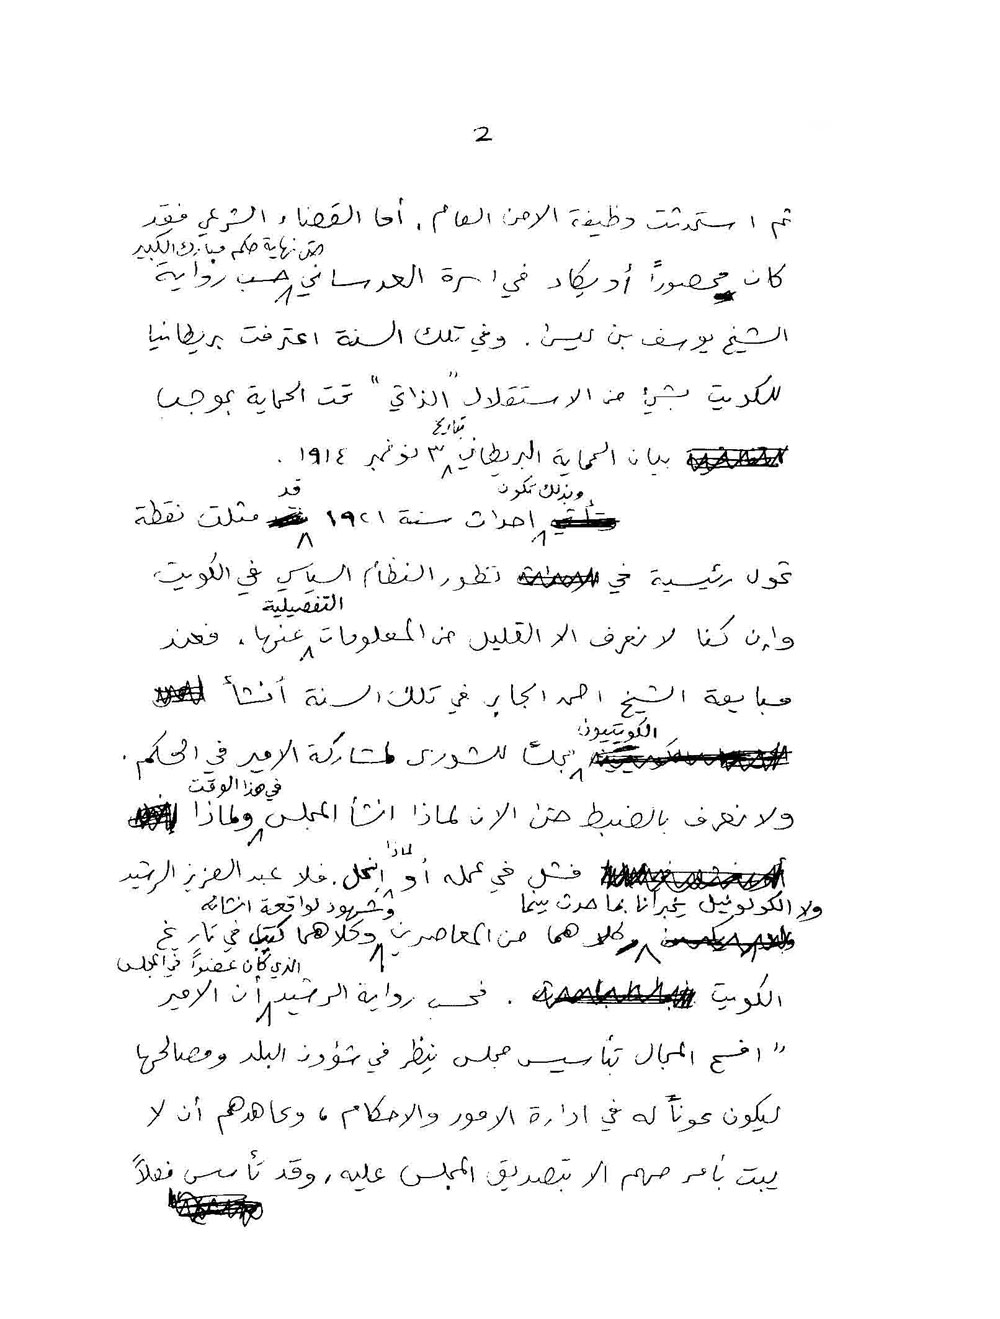 2
ثم استحدثت وظيفة الامن العام. أما القضاء الشرعي فقد
حتى نهاية حكم مبارك الكبير
كان محصوراً أو يكاد في اسرة العدساني حسب رواية
الشيخ يوسف بن عيسى. وفي تلك السنة اعترفت بريطانيا
للكويت بشيء من الاستقلال "الذاتي" تحت الحماية بموجب
بتاريخ
بيان الحماية البريطاني ٣ نوفمبر ١٩١٤.
وبذلك تكون قد
احداث سنة ١٩٢١ مثلت نقطة
تحول رئيسية في تطور النظام السياسي في الكويت
التفصيلية
وإن كنا لا نعرف الا القليل من المعلومات عنها. فعند
مبايعة الشيخ احمد الجابر في تلك السنة أنشأ
الكويتيون
مجلساً للشورى لمشاركة الامير في الحكم.
في هذا الوقت
ولا نعرف بالضبط حتى الان لماذا انشأ المجلس ولماذا
لماذا
فشل في عمله أو انحل. فلا عبدالعزيز الرشيد
ولا الكولونيل يخبرانا بما حدث بينما وشهود لواقعة انشائه
كلاهما من المعاصرين وكلاهما كتب في تاريخ
الذي كان عضواً في المجلس
الكويت . فحسب رواية الرشيد أن الامير
"افسح المجال بتأسيس مجلس ينظر في شؤون البلد ومصالحها
ليكون عوناً له في ادارة الامور والاحكام، وعاهدهم أن لا
يبت بأمر مهم الا بتصديق المجلس عليه، وقد تأسس فعلاً